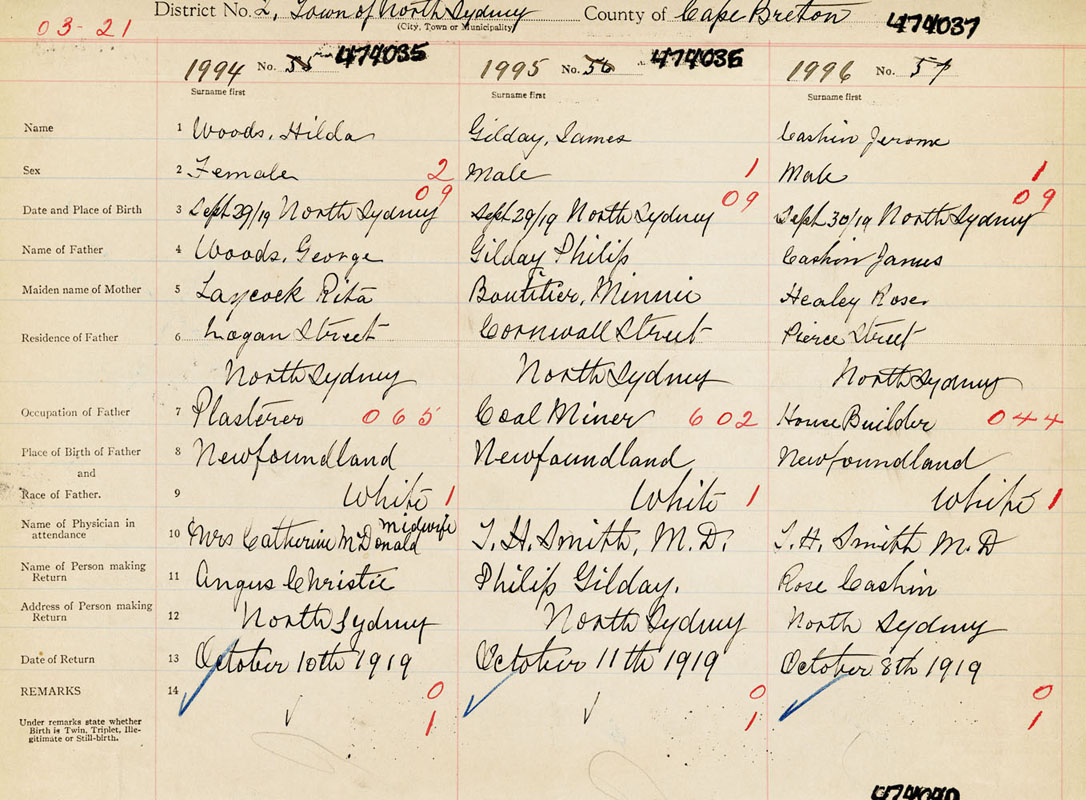 District No. 2, Town of North Sydney County of Cape Breton 474037
(City, Town or Municipality)
03-21
1994 No. 55 474035 1995 No. 56 474036 1996 No. 57
Surname first Surname first Surname first
Name 1 Woods, Hilda Gilday, James Cashin Jerome
Sex 2 Female 2 Male 1 Male 1
09 09 09
Date and Place of Birth 3 Sept 29/19 North Sydney Sept 29/19 North Sydney Sept 30/19 North Sydney
Name of Father 4 Woods, George Gilday Philip Cashin James
Maiden name of Mother 5 Laycock Rita Boutilier, Minnie Healey Rose
Residence of Father 6 Logan Street Cornwall Street Pierce Street
North Sydney North Sydney North Sydney
Occupation of Father 7 Plasterer 065 Coal Miner 602 House Builder 044
Place of Birth of Father 8 Newfoundland Newfoundland Newfoundland
and
Race of Father. 9 White 1 White 1 White 1
Name of Physician in attendance 10 Mrs Catherine McDonald midwife T. H. Smith, M.D. T. H. Smith M.D
Name of Person making Return 11 Angus Christie Philip Gilday. Rose Cashin
Address of Person making Return 12 North Sydney North Sydney North Sydney
Date of Return 13 October 10th 1919 October 11th 1919 October 8th 1919
REMARKS 14 0 0 0
Under remarks state whether 1 1 1
Birth is Twin, Triplet, Ille-
gitimate or Still-birth.